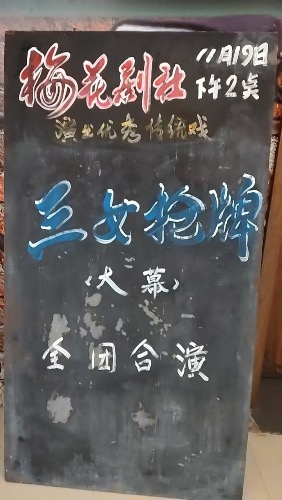 梅花剧社
11月19日
下午2点
演出优秀传统戏
三女抢牌
<大幕>
全团合演